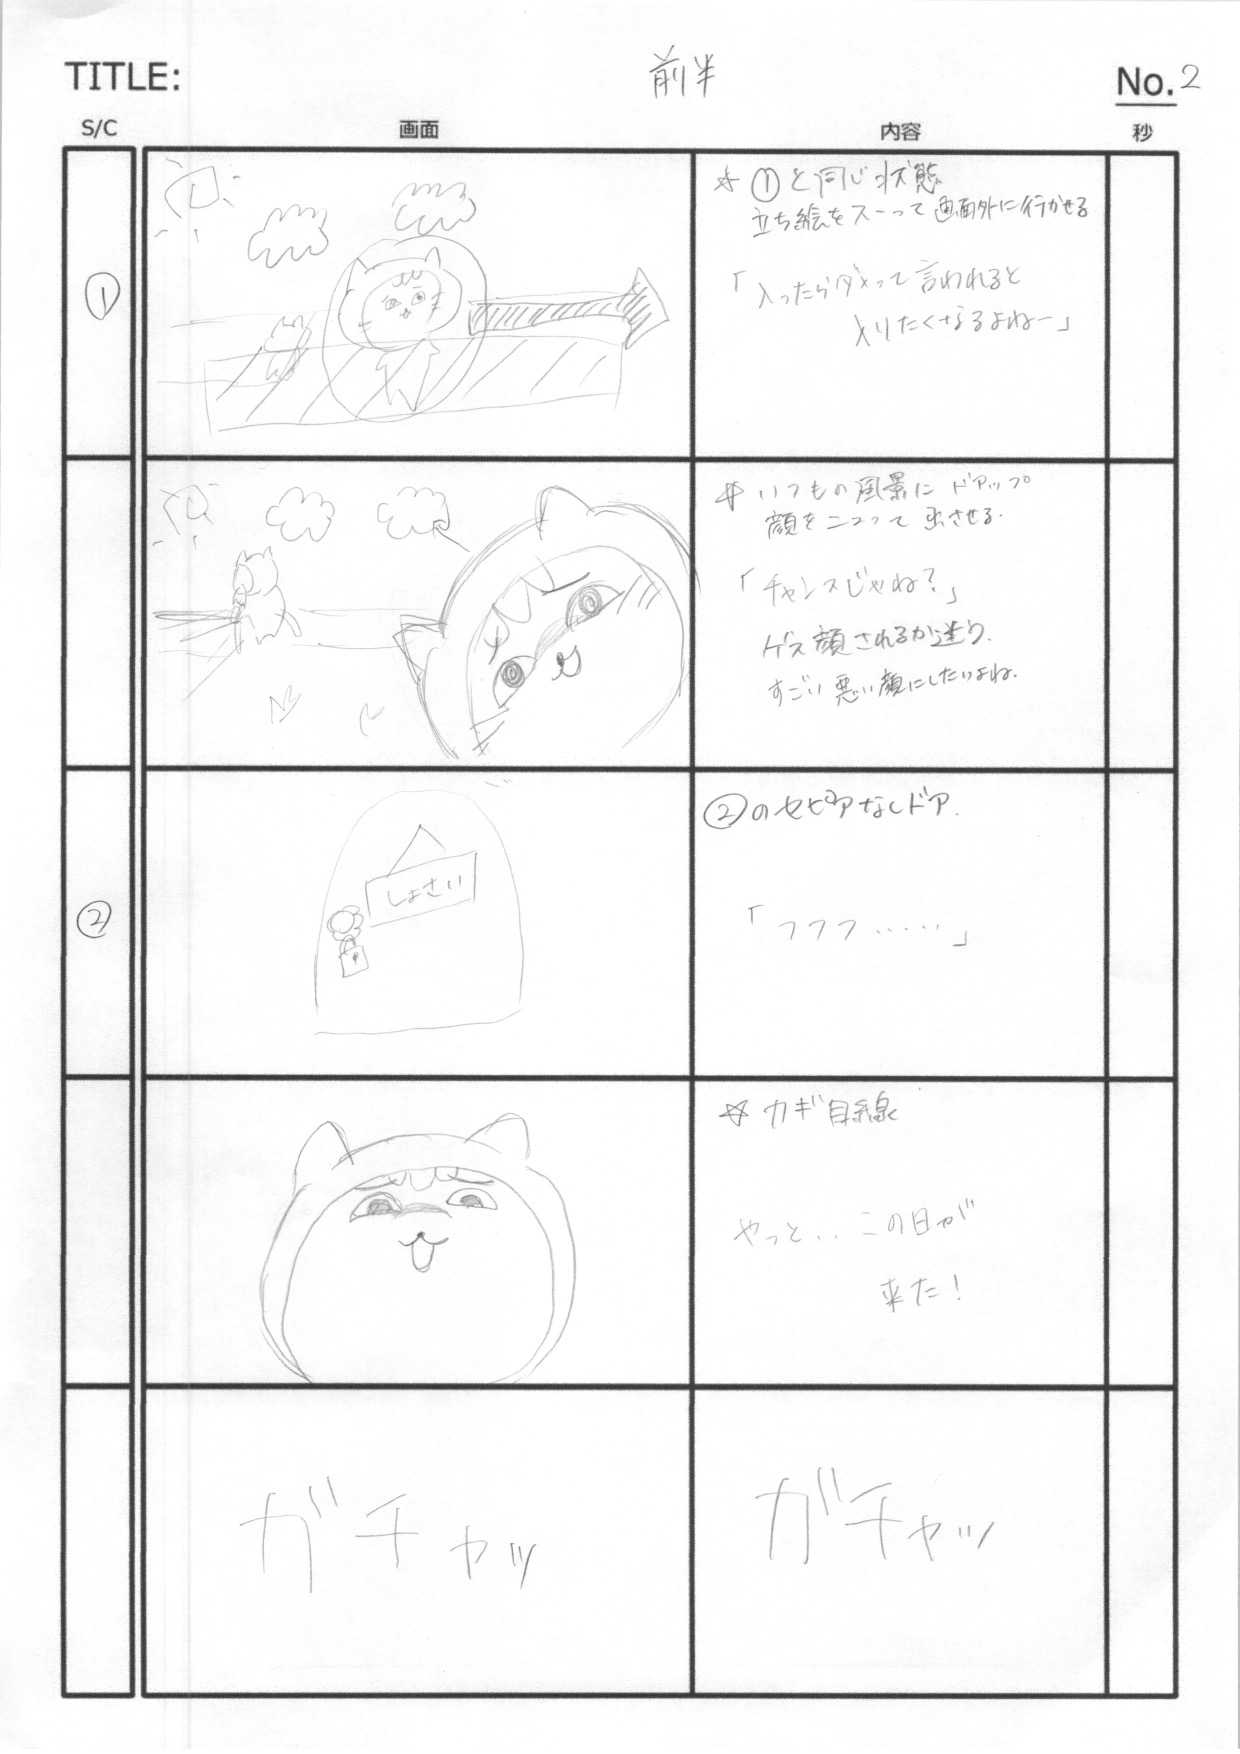 TITLE:
前半
No. 2
S/C
画面
内容
秒
①
☆ ①と同じ状態
立ち絵をスーって画面外に行かせる
「入ったらダメって言われると
入りたくなるよねー」
☆ いつもの風景に ドアップ
顔をニュって出させる.
「チャンスじゃね?」
ゲス顔されるか迷う.
すごい悪い顔にしたいよね.
②
しょさい
②のセピアなしドア.
「フフフ……」
☆ カギ目線
やっと‥この日が
来た!
ガチャッ
ガチャッ